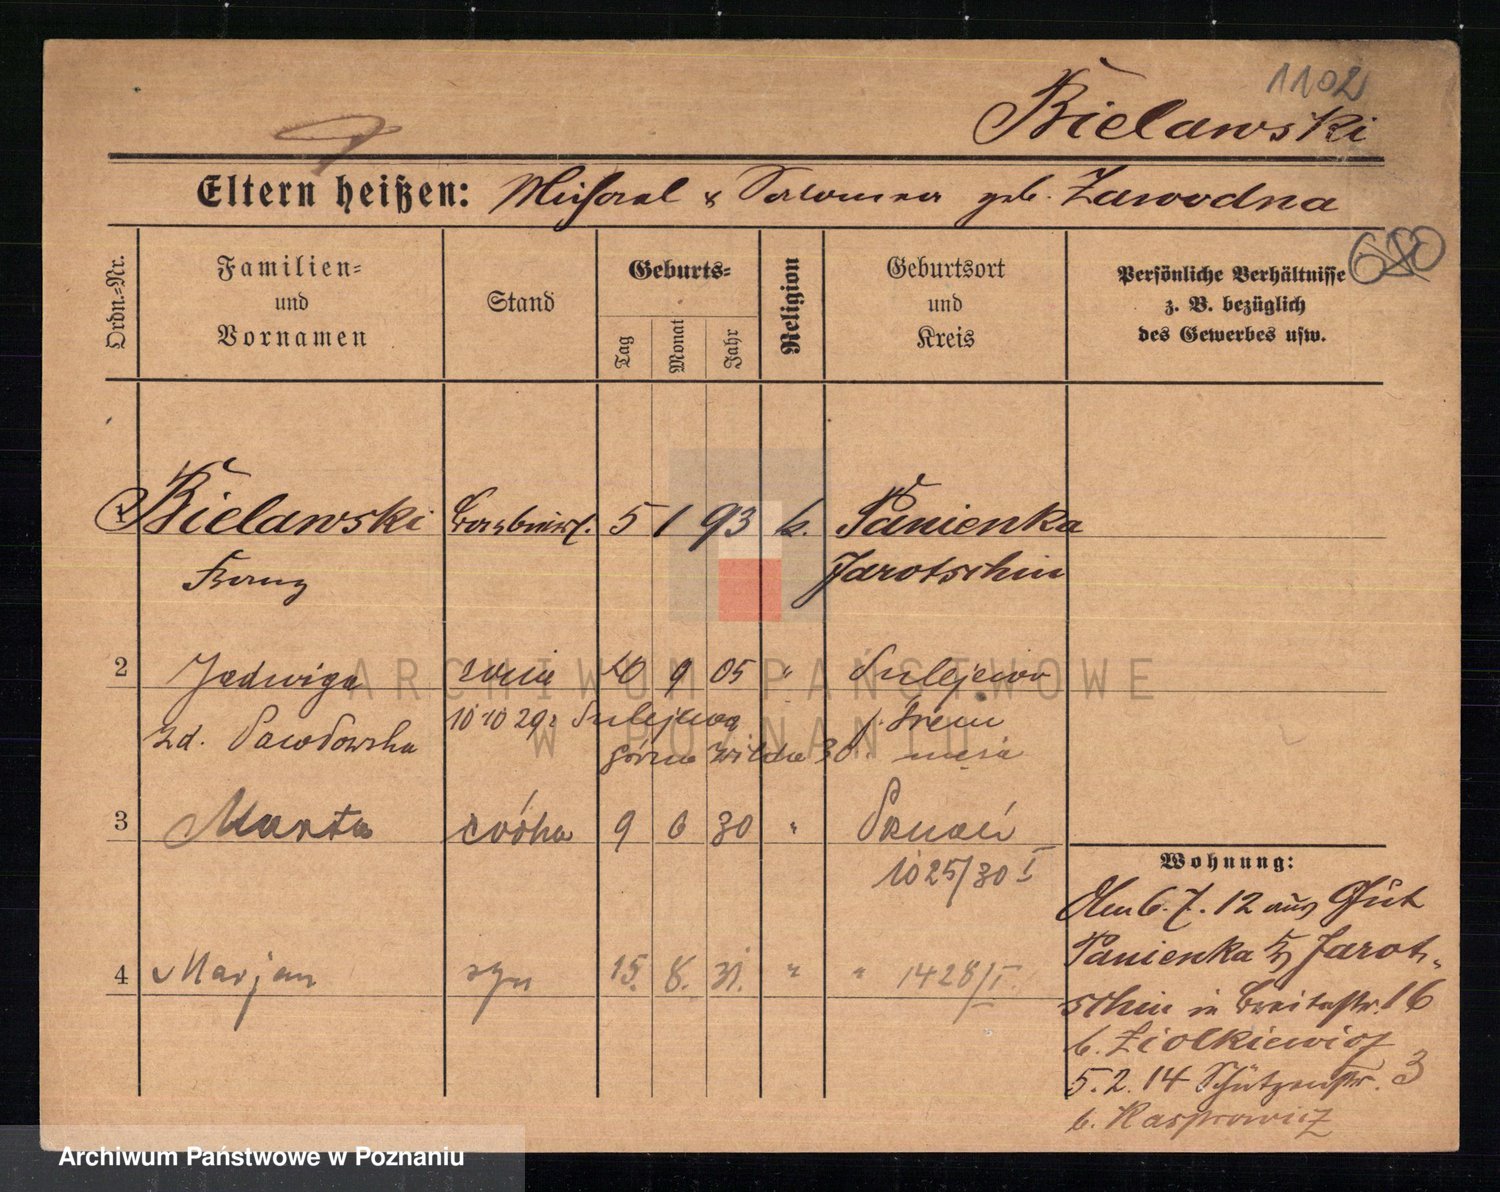 1102
Bielawski
Eltern heißen: Michael & Salomea geb. Zawodna
680
Ordn.-Nr.
Familien-
und
Vornamen
Stand
Geburts-
Tag
Monat
Jahr
Religion
Geburtsort
und
Kreis
Persönliche Verhältnisse
z. B. bezüglich
des Gewerbes usw.
1 Bielawski 5 1 93 k. Panienka
Franz Jarotschin
2 Jadwiga żona 20 9 05 " Sulejewo
zd. 10 10 29 p. Śrem
Górna Wilda 30.
3 Marta córka 9 6 30 " Poznań
1025/30 I
4 Marjan syn 15. 8. 31. " " 1428/I.
Wohnung:
Am 6. 7. 12 aus Gut
Panienka Jarot-
schin in Breitestr. 16
b. Ziolkiewicz
5. 2. 14 Schützenstr. 3
b. Kasprowicz
ARCHIWUM PAŃSTWOWE
W POZNANIU
Archiwum Państwowe w Poznaniu